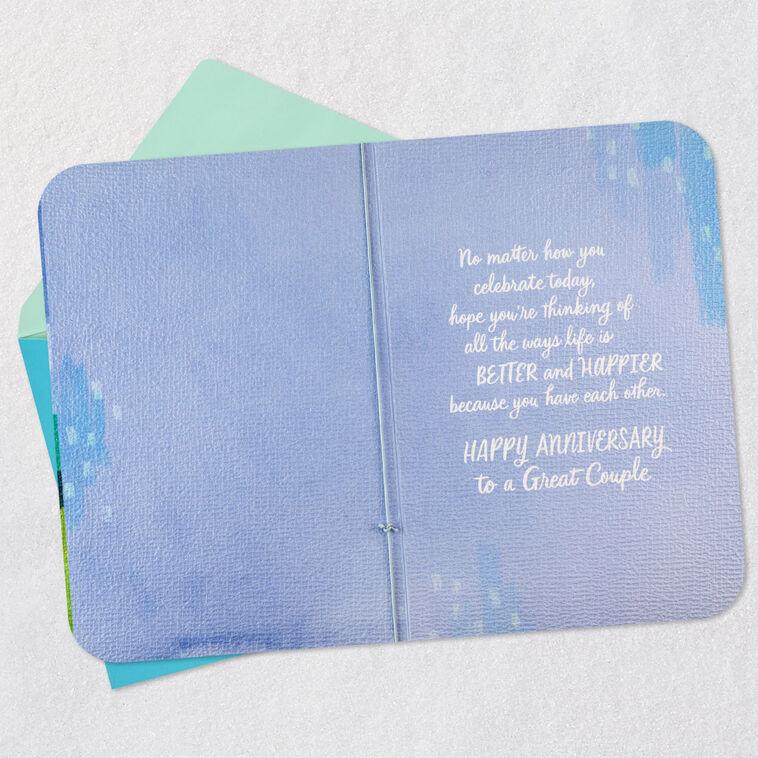 No matter how you
celebrate today,
hope you're thinking of
all the ways life is
BETTER and HAPPIER
because you have each other.
HAPPY ANNIVERSARY
to a Great Couple